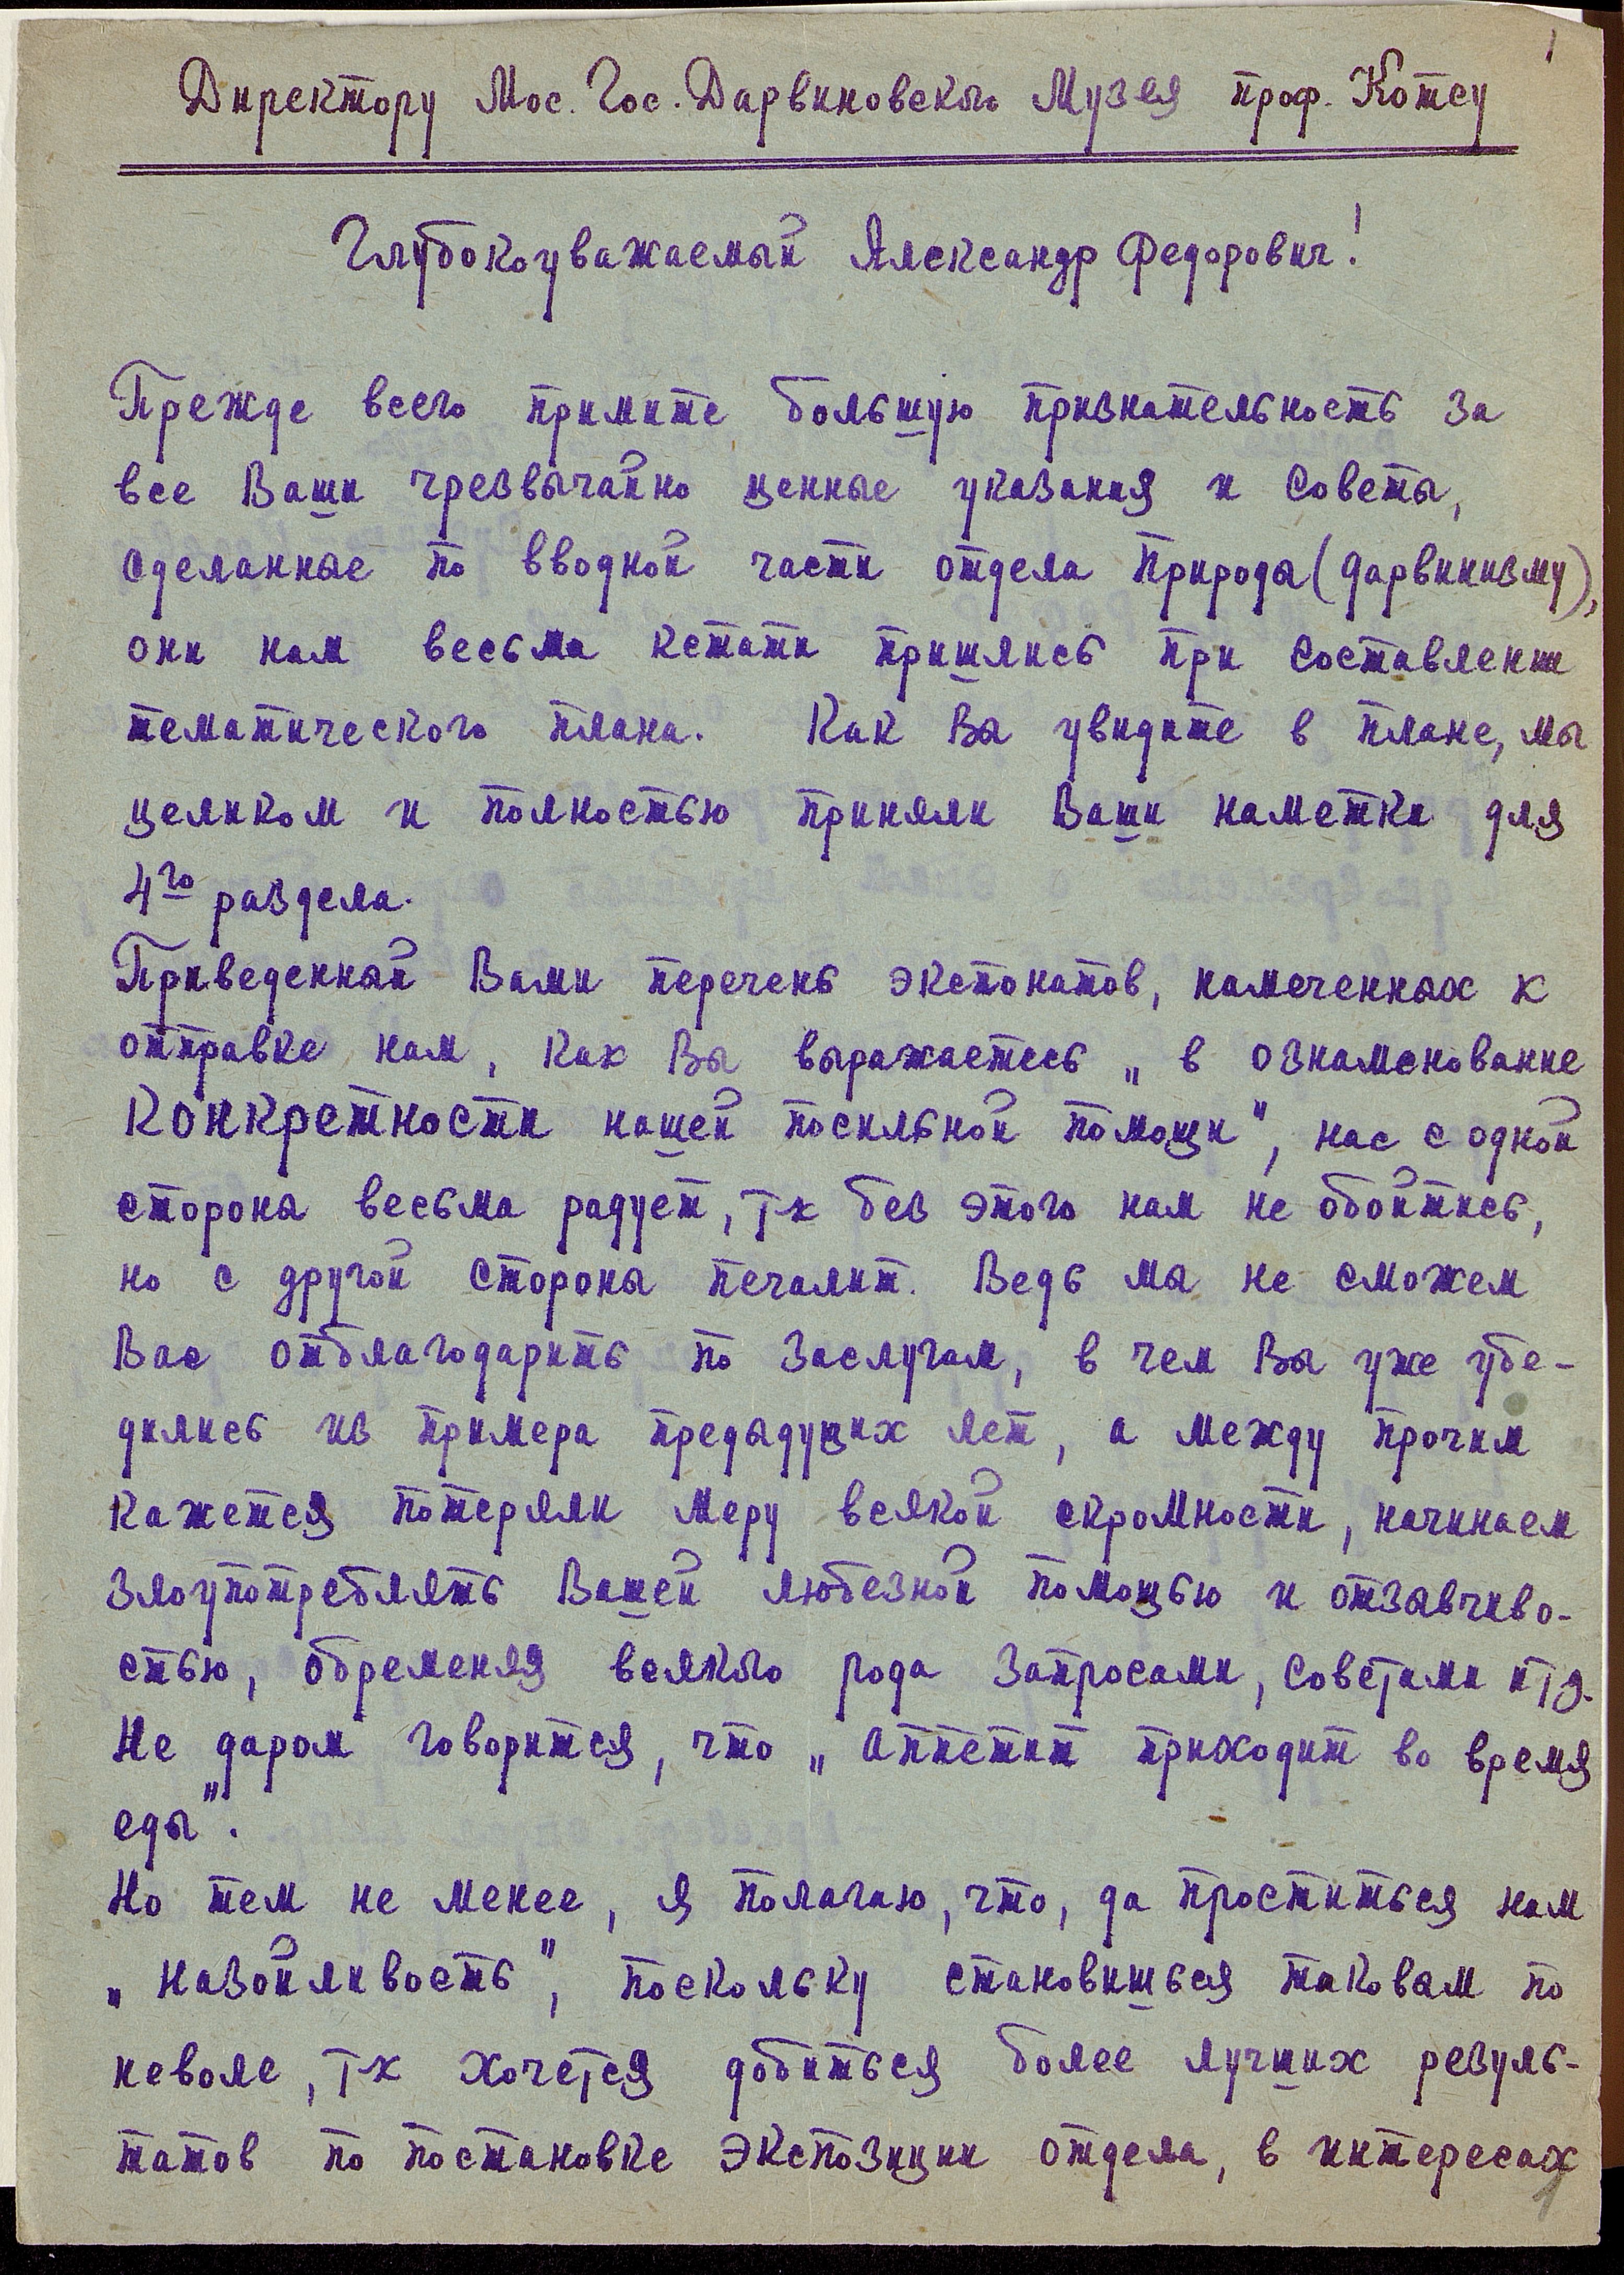 1
Директору Мос. Гос. Дарвиновского Музея проф. Котсу
Глубокоуважаемый Александр Федорович!
Прежде всего примите большую признательность за
все Ваши чрезвычайно ценные указания и советы,
сделанные по вводной части отдела Природы (дарвинизму),
они нам весьма кстати пришлись при составлении
тематического плана. Как Вы увидите в плане, мы
целиком и полностью приняли Ваши наметки для
4го раздела.
Приведенный Вами перечень экспонатов, намеченных к
отправке нам, как Вы выражаетесь „в ознаменование
конкретности нашей посильной помощи", нас с одной
стороны весьма радует, т-к без этого нам не обойтись,
но с другой стороны печалит. Ведь мы не сможем
Вас отблагодарить по заслугам, в чем Вы уже убе-
дились из примера предыдущих лет, а между прочим
кажется потеряли меру всякой скромности, начинаем
злоупотреблять Вашей любезной помощью и отзывчиво-
стью, обременяя всякого рода запросами, советами и т д.
Не даром говорится, что „аппетит приходит во время
еды".
Но тем не менее, я полагаю, что, да проститься нам
„назойливость", поскольку становишься таковым по
неволе, т-к хочется добиться более лучших резуль-
татов по постановке экспозиции отдела, в интересах
1